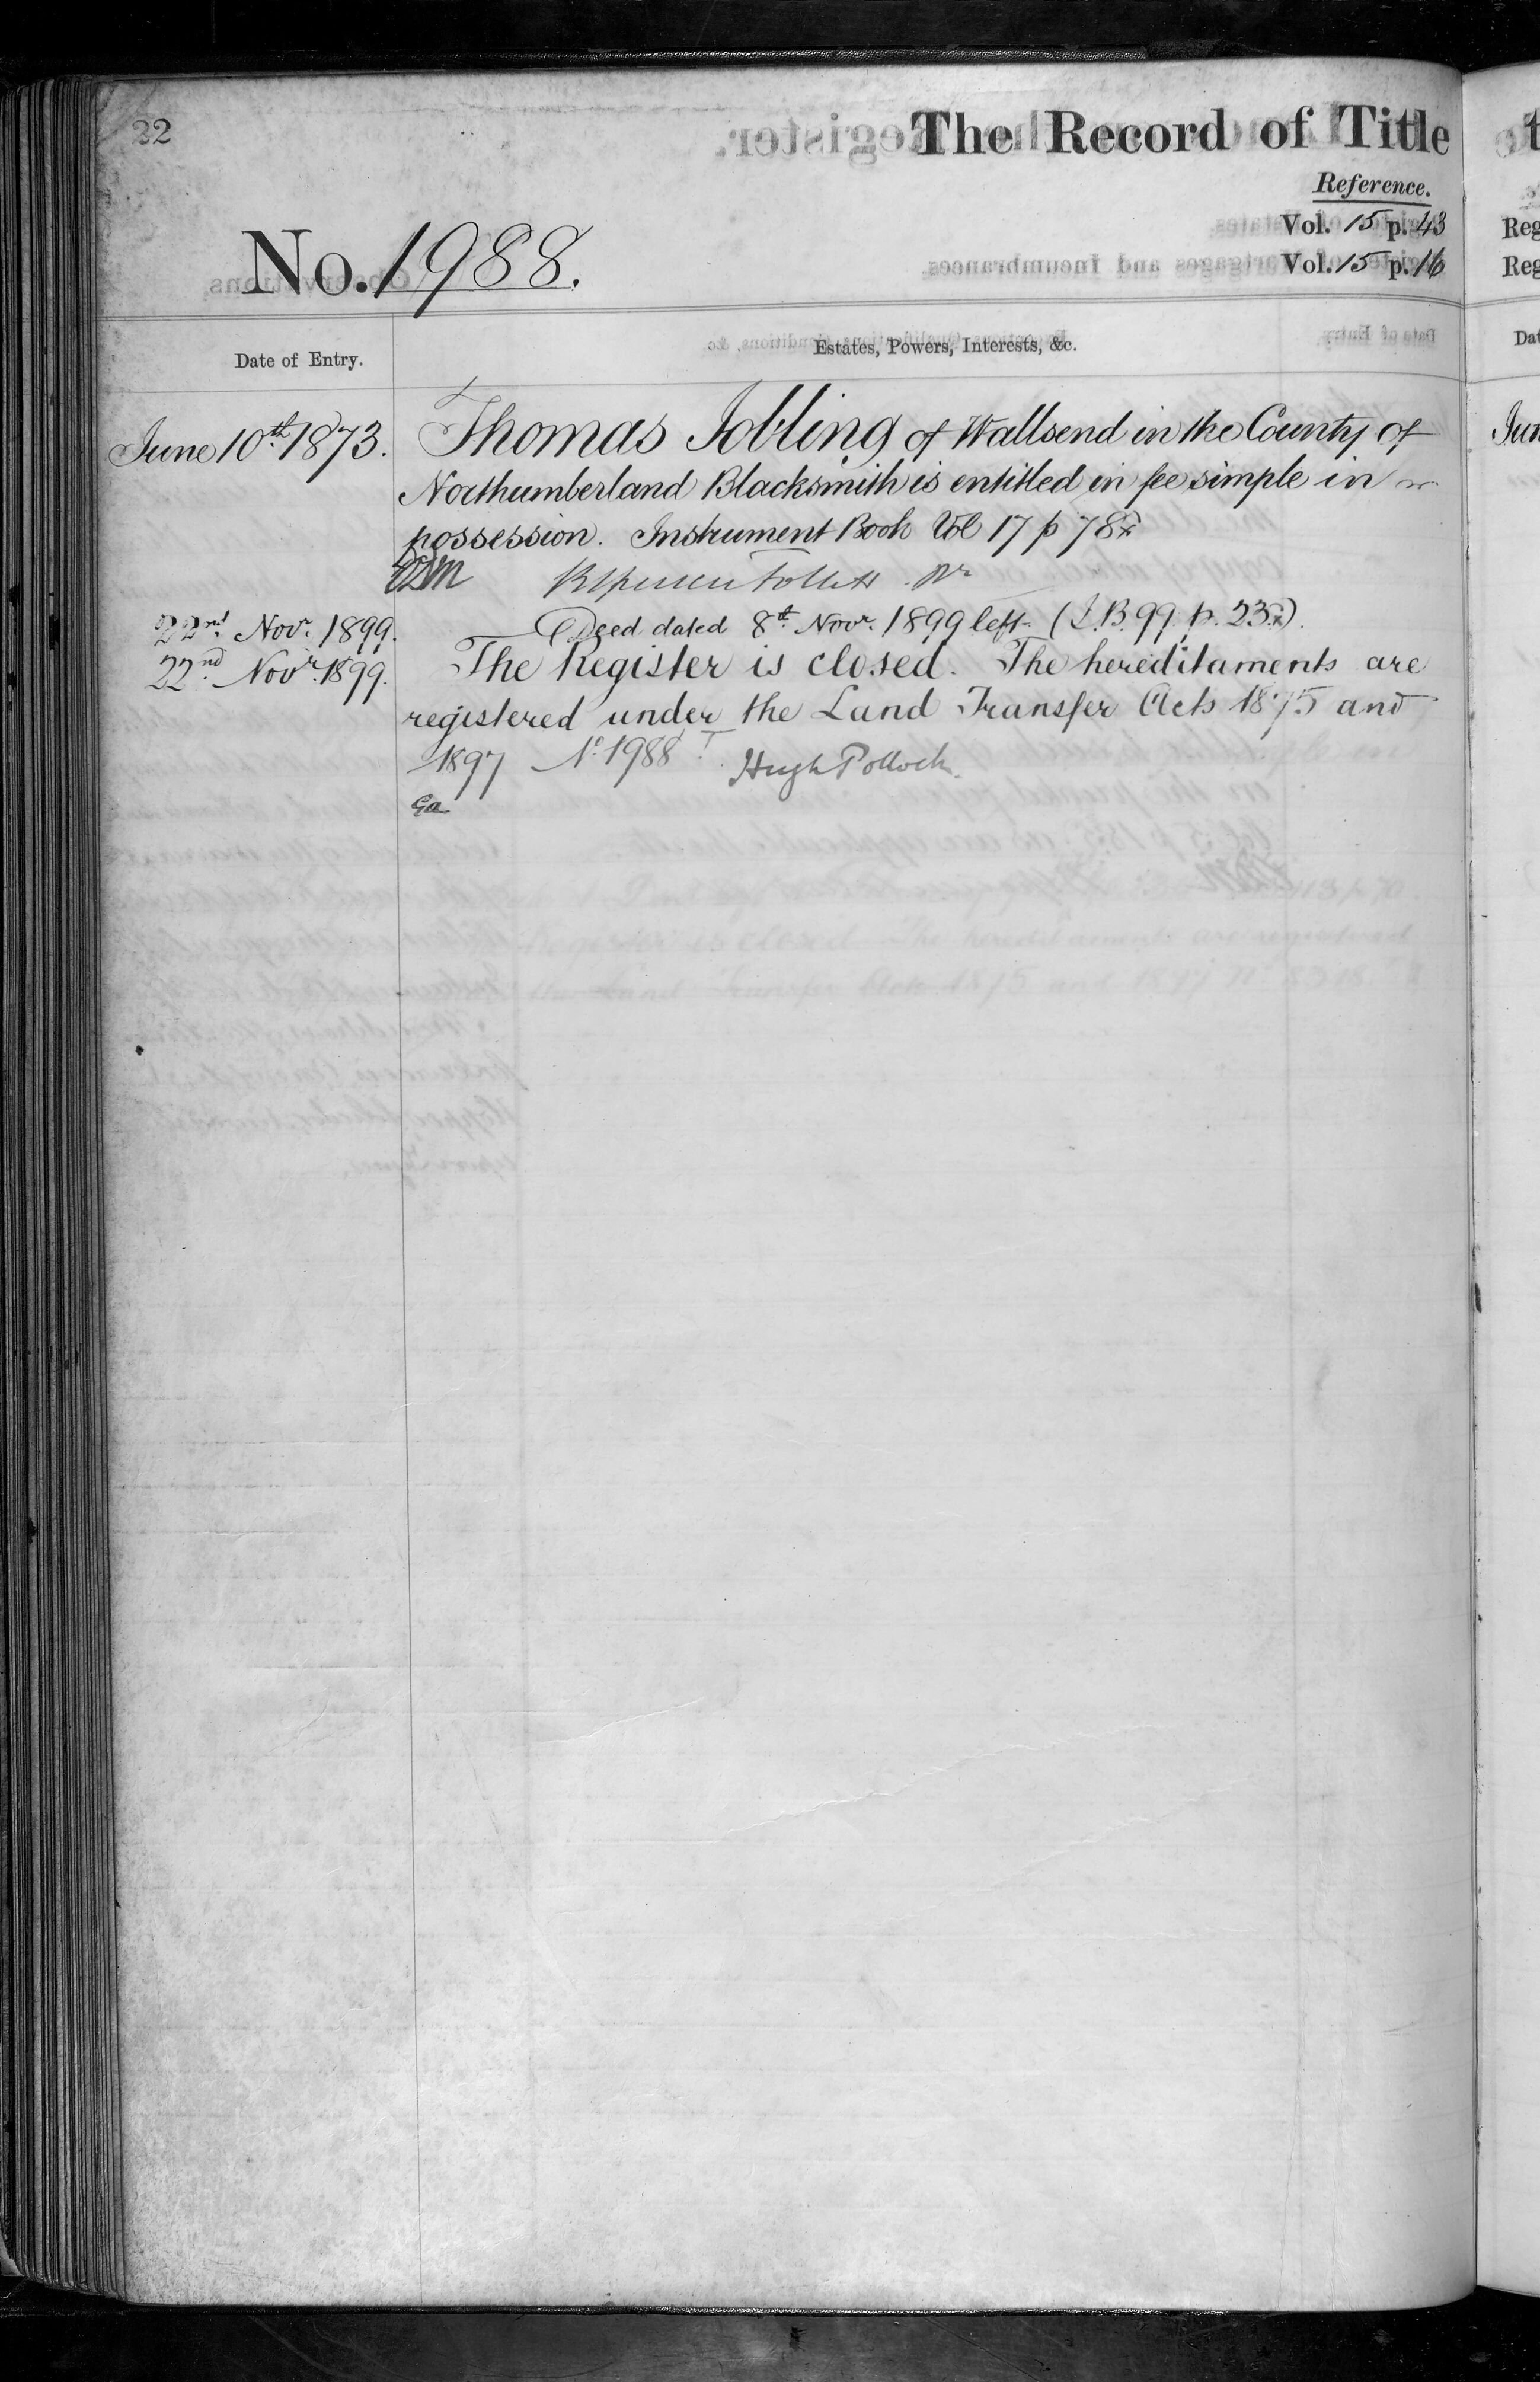 22
The Record of Title
Reference.
Vol. 15 p. 43
No. 1988.
Vol. 15 p. 16
Date of Entry.
Estates, Powers, Interests, &c.
June 10th 1873. Thomas Jobling of Wallsend in the County of
Northumberland Blacksmith is entitled in fee simple in
possession. Instrument Book Vol 17 p 78
22nd Novr. 1899. Deed dated 8th Novr. 1899 left (I.B. 99. p. 23).
22nd Novr. 1899. The Register is closed. The hereditaments are
registered under the Land Transfer Acts 1875 and
1897 No. 1988 T. Hugh Pollock.
Ga
Reg
Reg
Dat
Jun